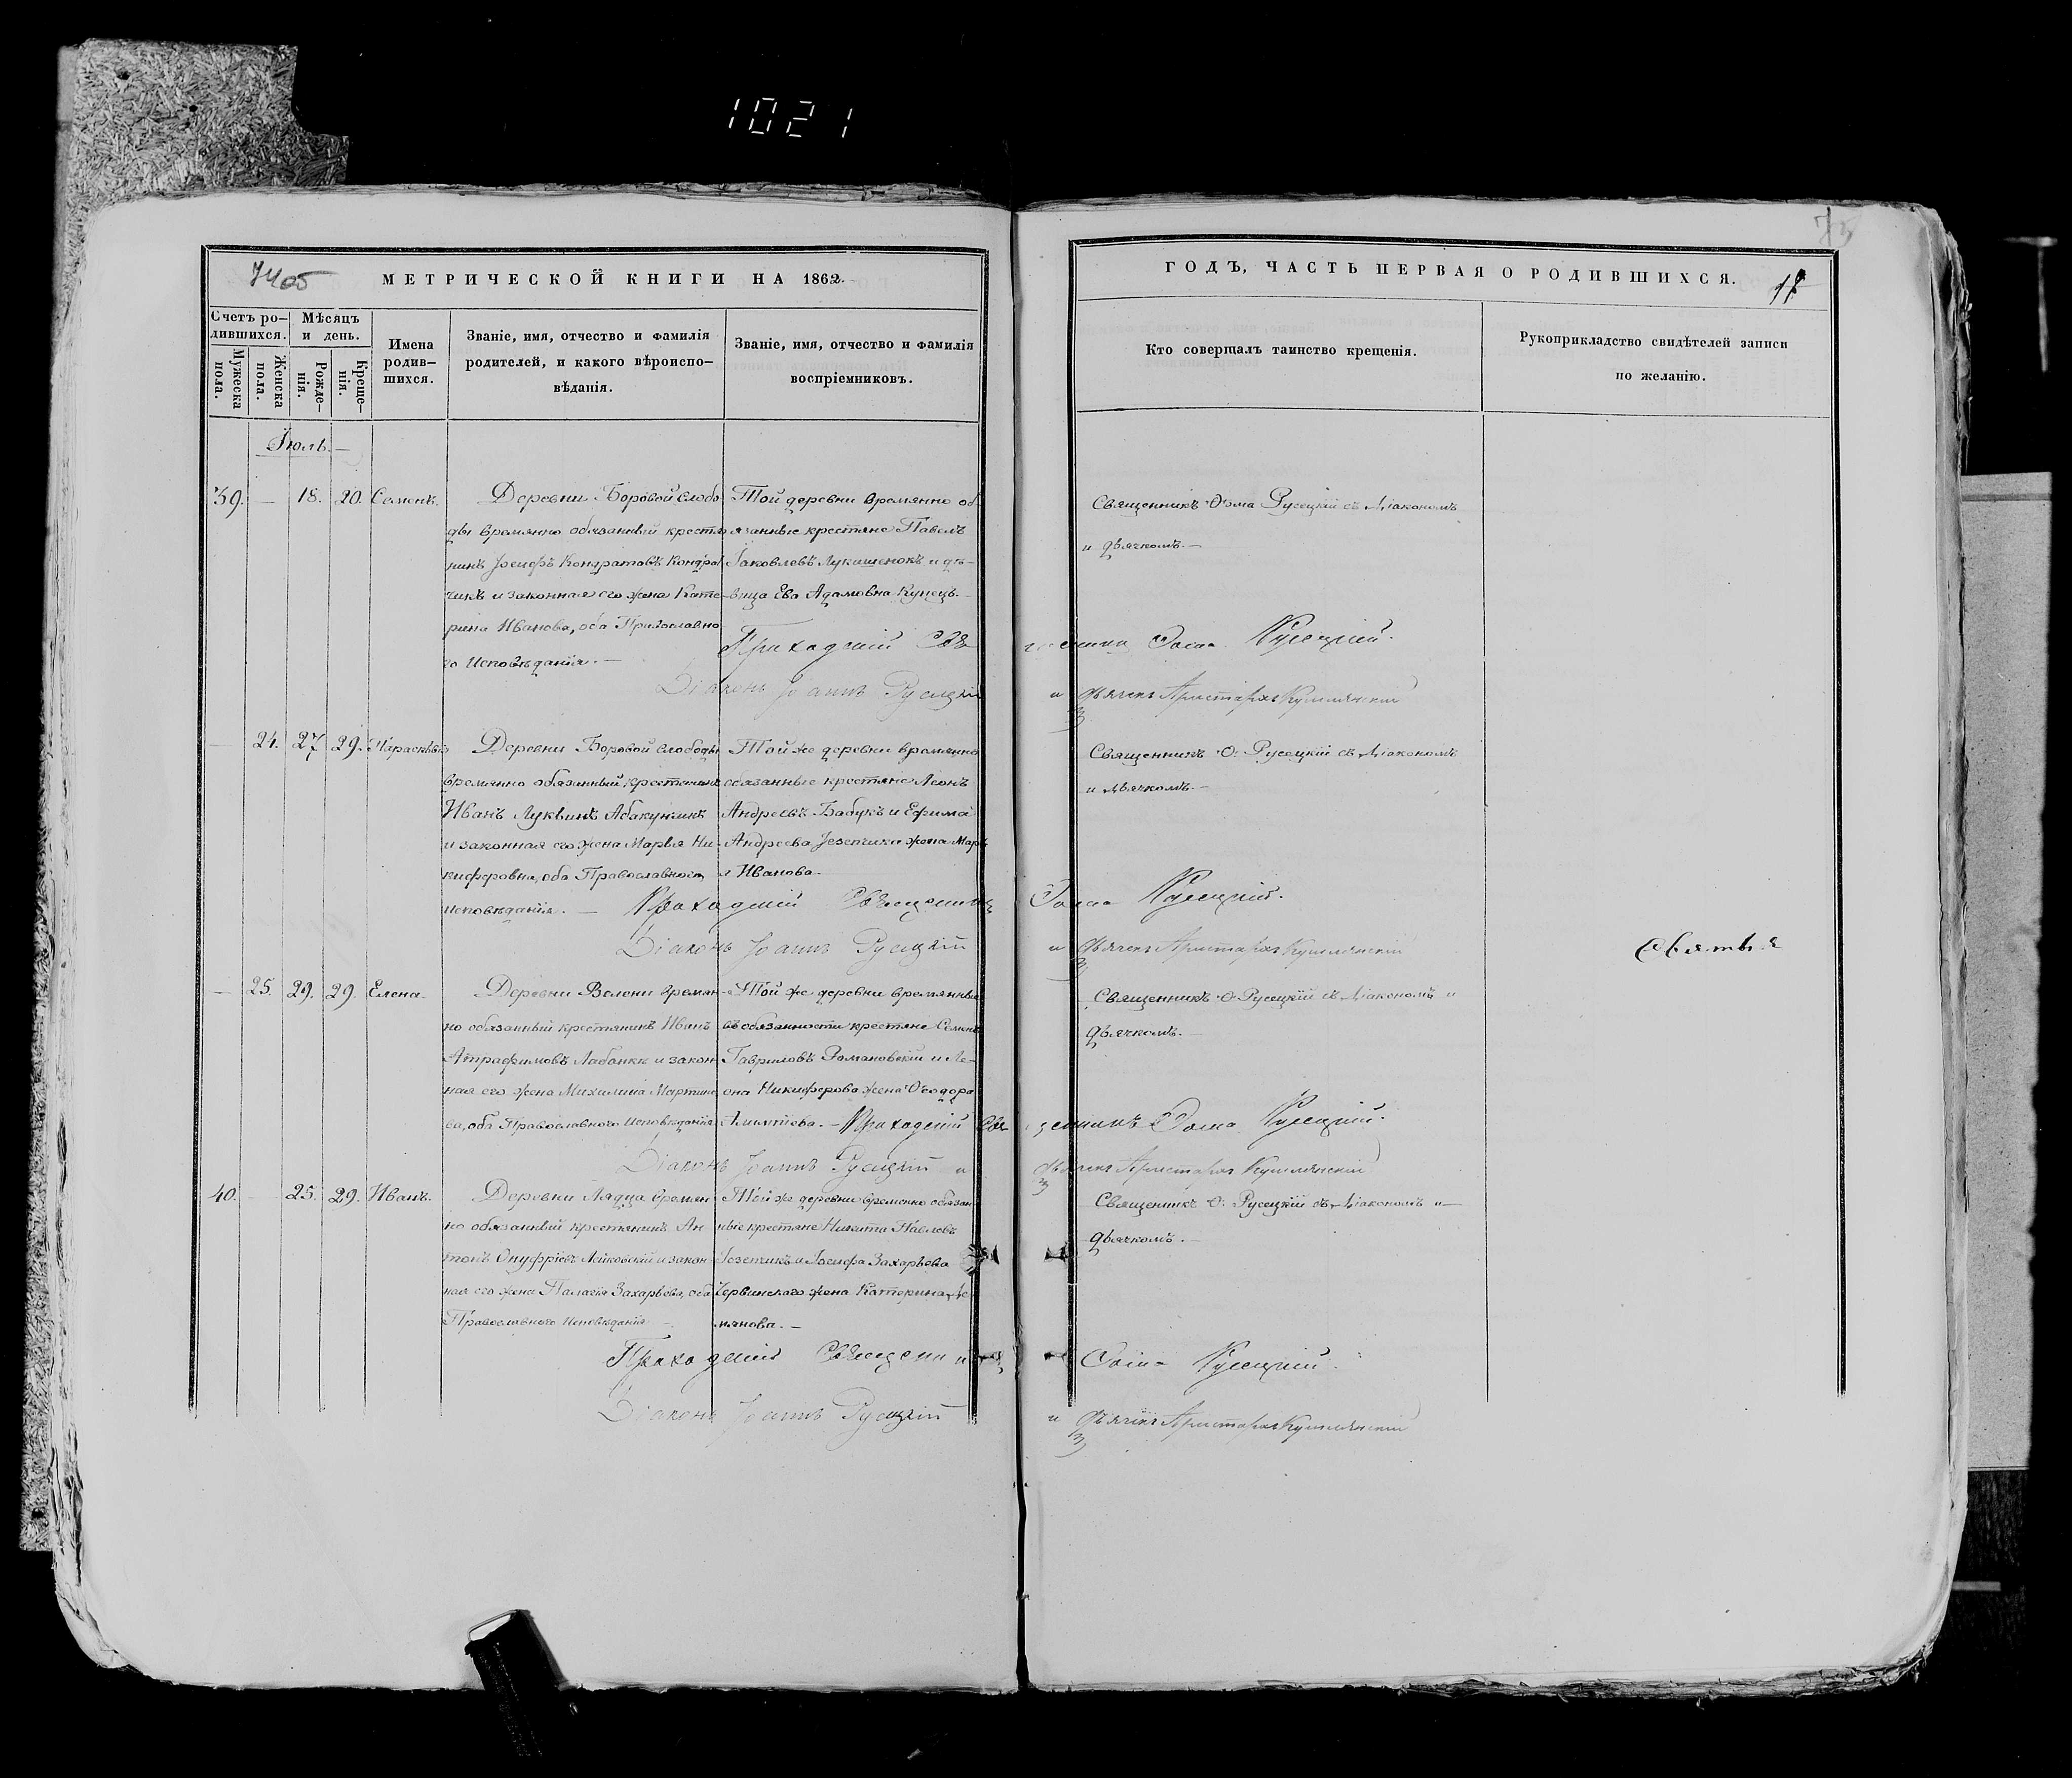 1021
75
74об
МЕТРИЧЕСКОЙ КНИГИ НА 1862.
ГОДЪ, ЧАСТЬ ПЕРВАЯ О РОДИВШИХСЯ.
Счетъ ро-
дившихся.
Мѣсяцъ
и день.
Мужеска
пола.
Женска
пола.
Рожде-
нія.
Креще-
нія.
Имена
родив-
шихся.
Званіе, имя, отчество и фамилія
родителей, и какого вѣроиспо-
вѣданія.
Званіе, имя, отчество и фамилія
воспріемниковъ.
Кто совершалъ таинство крещенія.
Рукоприкладство свидѣтелей записи
по желанію.
Іюль.—
39. — 18. 20. Семенъ.
Деревни Боровой слобо
ды времянно обязанный крестья
нинъ Іосифъ Кондратовъ Кондрат
чикъ и законная его жена Кате-
рина Иванова, оба Православно
го Исповѣданія.—
Той деревни времянно об
язанные крестяне Павелъ
Іаковлевъ Лукашенокъ и дѣ-
вица Ева Адамовна Купецъ.
Священникъ Ѳома Русецкій съ Діакономъ
и дьячкомъ.—
Приходскій Священникъ Ѳома Русецкій.
Діаконъ Іоаннъ Русецкій
и дьячекъ Аристархъ
— 24. 27. 29. Параскева
Деревни Боровой слободы
времянно обязанный крестянинъ
Иванъ Луквинъ Абакунчикъ
и законная его жена Марья Ни-
киферовна, оба Православнаго
исповѣданія.—
Той же деревни времянно
обязанные крестяне Леонъ
Андреевъ Бабукъ и Ефима
Андреева Іезепчика жена Марья
Иванова
Священникъ Ѳ. Русецкій съ Діакономъ
и Дьячкомъ.—
Приходскій Священникъ Ѳома Русецкій.
Діаконъ Іоаннъ Русецкій
и дьячекъ Аристархъ
— 25. 29. 29. Елена
Деревни времян-
но обязанный крестянинъ Иванъ
и закон
ная его жена Михалина Мартино
ва, оба Православнаго Исповѣданія
Той же деревни времянные
въ обязанности крестяне Семенъ
Гавриловъ Романовскій и Ле-
она Никиферова жена Ѳеодора
Священникъ Ѳ. Русецкій съ Діакономъ и
дьячкомъ.—
Приходскій Священникъ Ѳома Русецкій.
Діаконъ Іоаннъ Русецкій и
дьячекъ Аристархъ
40. — 25. 29. Иванъ.
Деревни Лядца времян
но обязанный крестянинъ Ан
тонъ Онуфріевъ и закон
ная его жена Палагія Захарьева, оба
Православнаго Исповѣданія
Той же деревни временно обязан
ные крестяне Никита Павловъ
Іезепчикъ и Іосифа Захарьева
Червинскаго жена Катерина
Священникъ Ѳ. Русецкій съ Діакономъ и—
дьячкомъ.—
Приходскій Священникъ Ѳома Русецкій.
Діаконъ Іоаннъ Русецкій
и дьячекъ Аристархъ